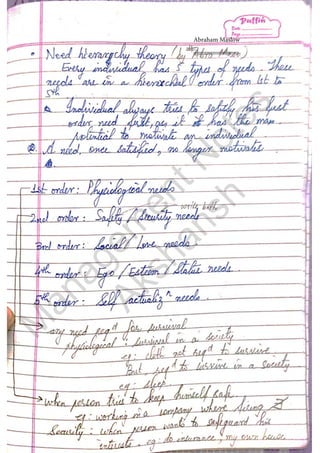 Puffin
Date
Page
Abraham Maslow
• Need hierarchy theory (by
Every individual has 5 types of needs. These
needs are in a hierarchial order from 1st to
5th
Individual always tries to satisfy his first
order need first, as it has the max
potential to motivate an individual
2. A need, once satisfied, no longer motivates
1st order: Physiological needs
2nd order: Safety / Security needs
3rd order: Social / Love needs
4th order: Ego / Esteem / Status needs.
5th order: Self actualizn needs.
→ any need reqd for survival
physiological : survival in a society
eg: cloth not reqd to survive
But reqd to survive in a society
eg: sleep
→ when person tries to keep himself safe
eg: working in a company where firing
Security: when person wants to safeguard his
interests. eg: do insurance, my own house
Management Notes
Akshansh